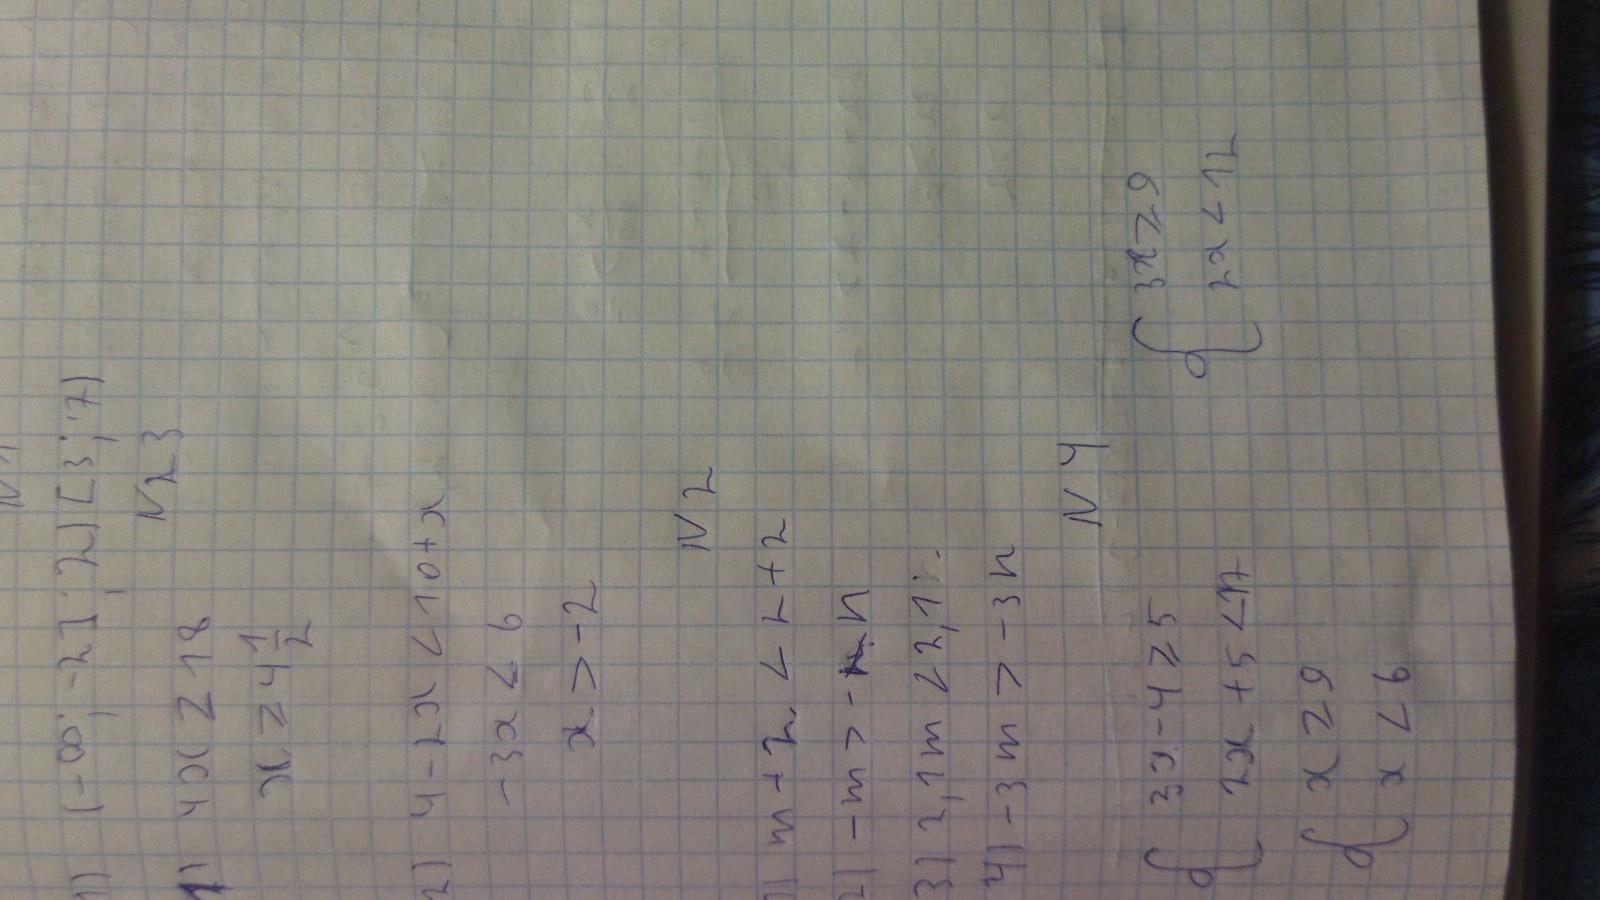 1) (-∞; -2]; 2) [3; 7)
N23
1) 4x ≥ 18
x ≥ 4 1/2
2) 4-2x < 10+x
-3x < 6
x > -2
N2
1) m + 2 < 2 + 2
2) -m > -n
3) 2,1m < 2,1
4) -3m > -3n
N4
{ 3x-4 ≥ 5 { 3x ≥ 9
2x + 5 < 17 2x < 12
{ x ≥ 9
x < 6